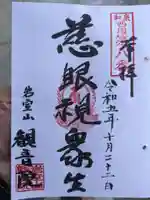 奉拝
令和五年十月二十二日
慈眼視衆生
岩室山
観音院